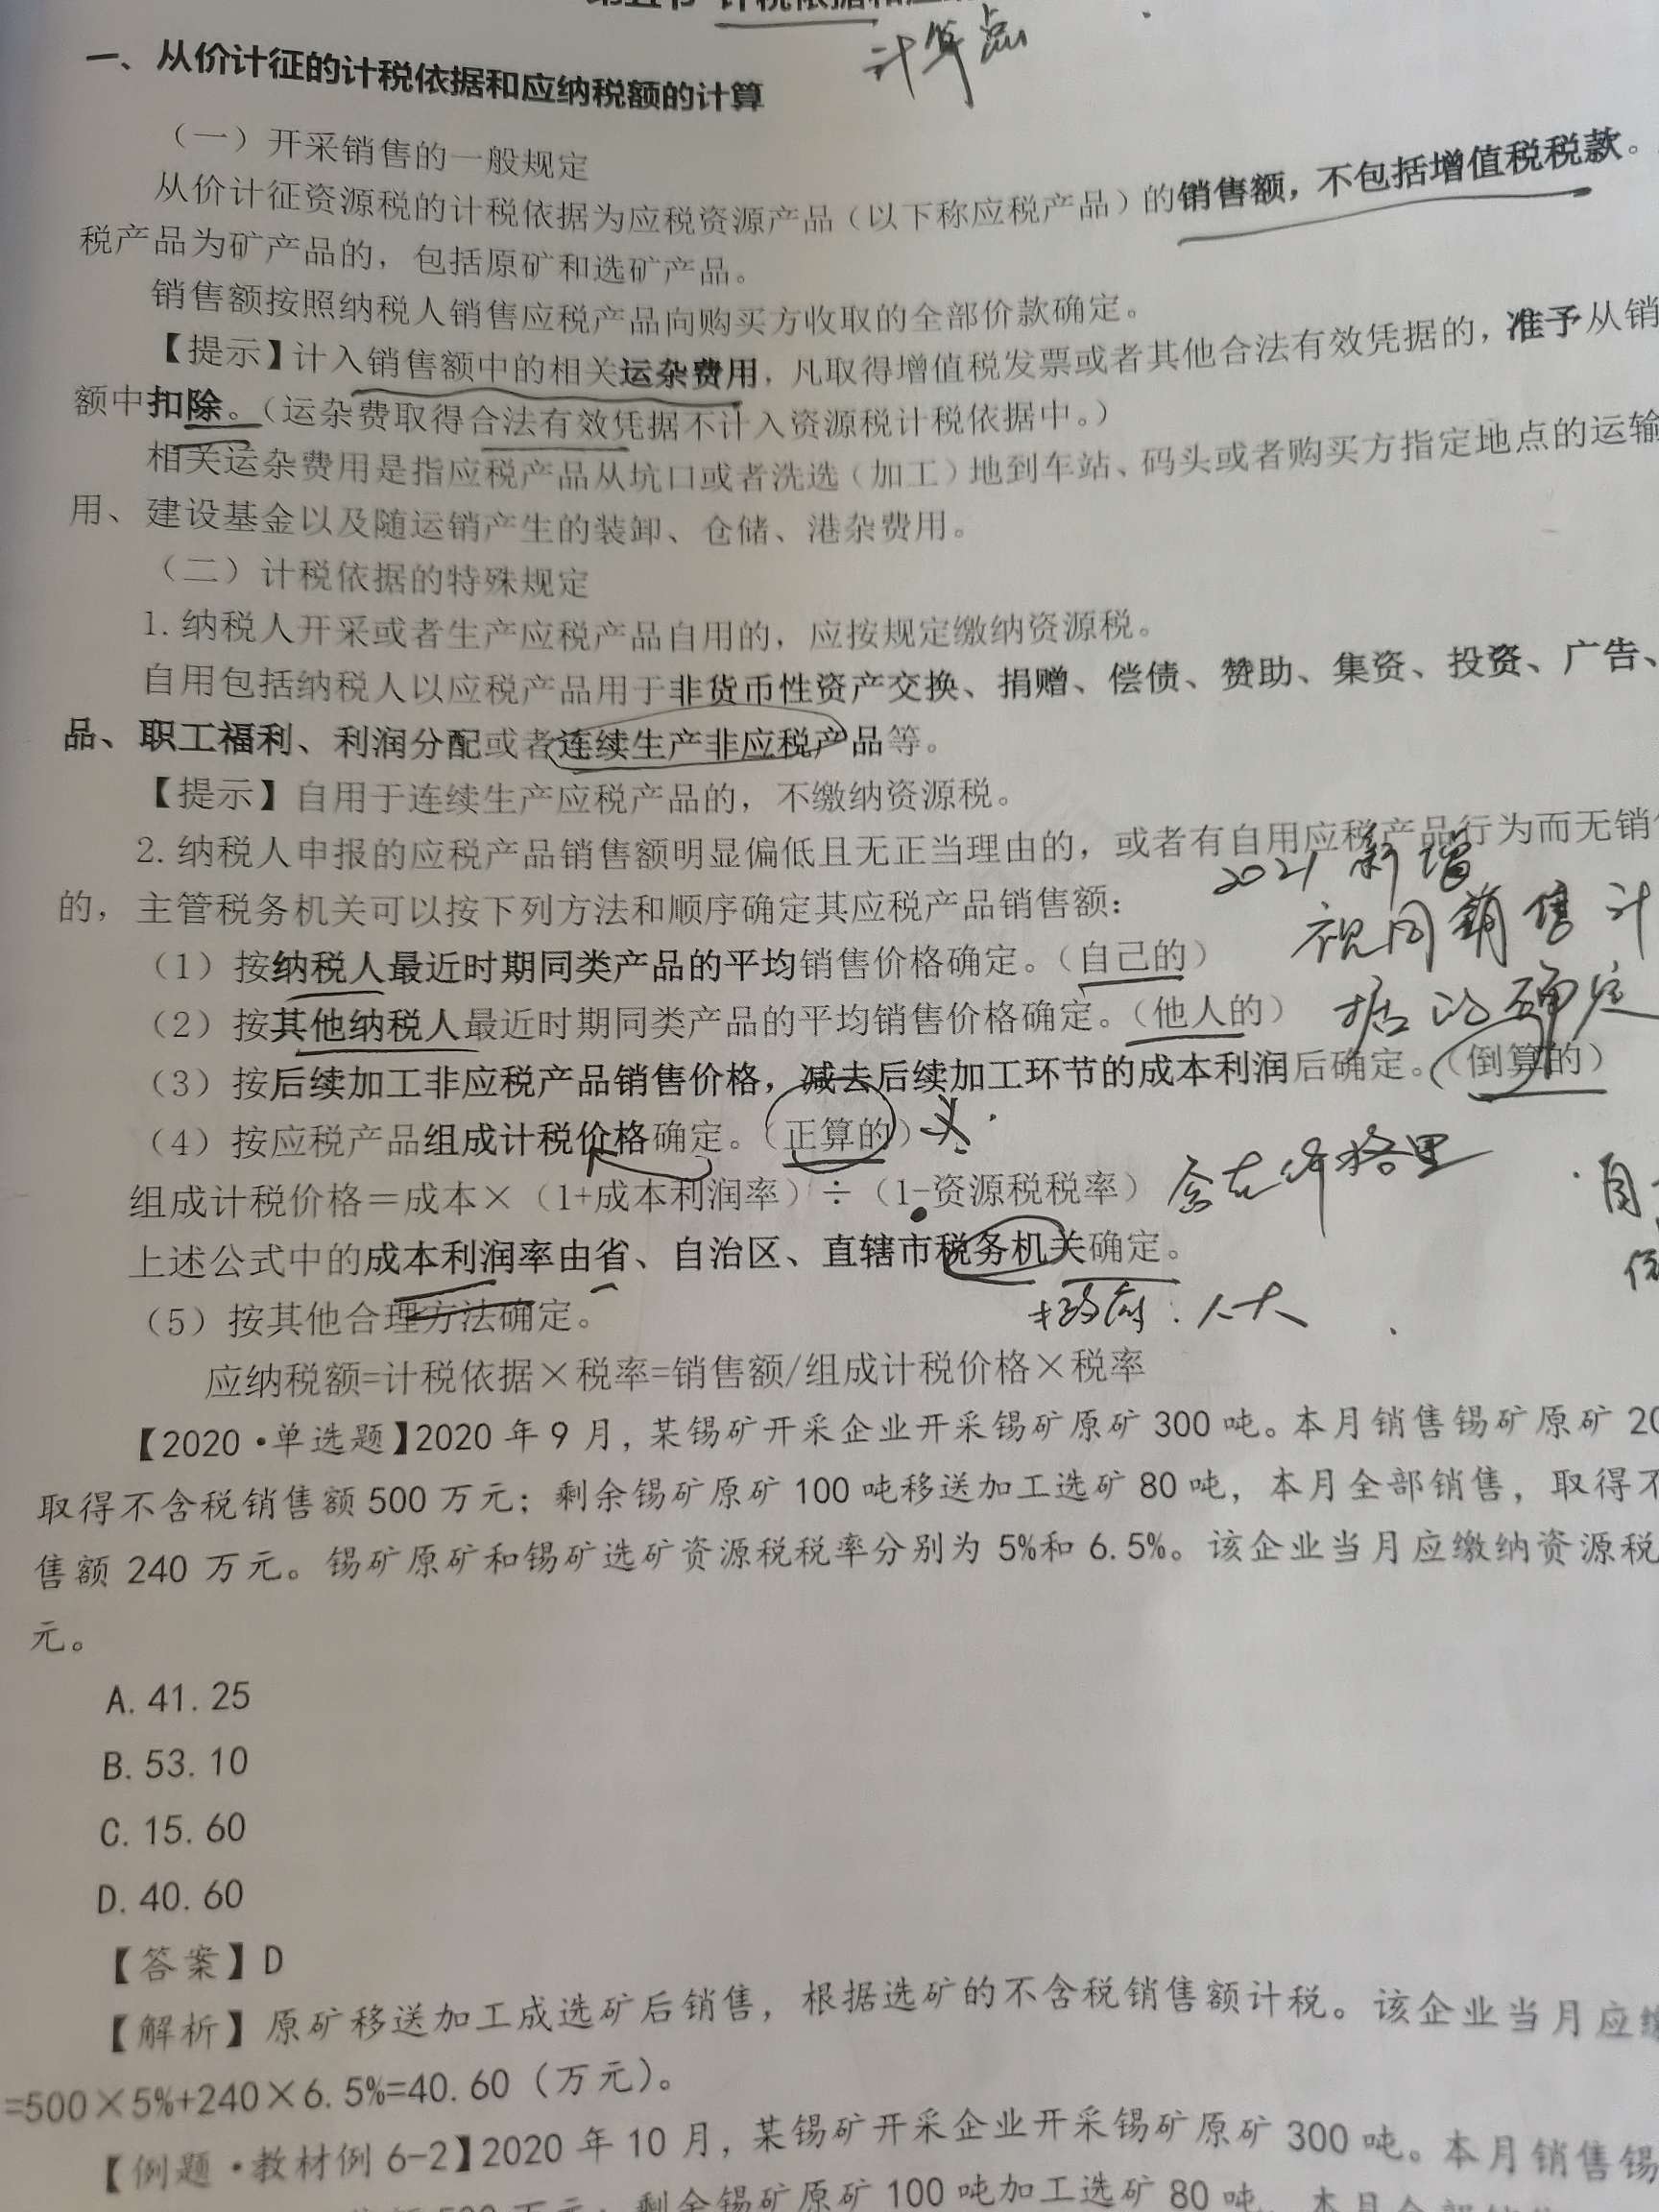 计税依据和应
计算点
一、从价计征的计税依据和应纳税额的计算
（一）开采销售的一般规定
从价计征资源税的计税依据为应税资源产品（以下称应税产品）的销售额，不包括增值税税款。
税产品为矿产品的，包括原矿和选矿产品。
销售额按照纳税人销售应税产品向购买方收取的全部价款确定。
【提示】计入销售额中的相关运杂费用，凡取得增值税发票或者其他合法有效凭据的，准予从销
额中扣除。（运杂费取得合法有效凭据不计入资源税计税依据中。）
相关运杂费用是指应税产品从坑口或者洗选（加工）地到车站、码头或者购买方指定地点的运输
用、建设基金以及随运销产生的装卸、仓储、港杂费用。
（二）计税依据的特殊规定
1.纳税人开采或者生产应税产品自用的，应按规定缴纳资源税。
自用包括纳税人以应税产品用于非货币性资产交换、捐赠、偿债、赞助、集资、投资、广告、
品、职工福利、利润分配或者连续生产非应税产品等。
【提示】自用于连续生产应税产品的，不缴纳资源税。
2.纳税人申报的应税产品销售额明显偏低且无正当理由的，或者有自用应税产品行为而无销
2021新增
的，主管税务机关可以按下列方法和顺序确定其应税产品销售额：
视同销售计
（1）按纳税人最近时期同类产品的平均销售价格确定。（自己的）
（2）按其他纳税人最近时期同类产品的平均销售价格确定。（他人的）
确定
（3）按后续加工非应税产品销售价格，减去后续加工环节的成本利润后确定。（倒算的）
（4）按应税产品组成计税价格确定。（正算的）
含在价格里
组成计税价格＝成本×（1+成本利润率）÷（1-资源税税率）
上述公式中的成本利润率由省、自治区、直辖市税务机关确定。
：人大
（5）按其他合理方法确定。
应纳税额=计税依据×税率=销售额/组成计税价格×税率
【2020·单选题】2020年9月，某锡矿开采企业开采锡矿原矿300吨。本月销售锡矿原矿20
取得不含税销售额500万元；剩余锡矿原矿100吨移送加工选矿80吨，本月全部销售，取得不
售额240万元。锡矿原矿和锡矿选矿资源税税率分别为5%和6.5%。该企业当月应缴纳资源税
元。
A.41.25
B.53.10
C.15.60
D.40.60
【答案】D
【解析】原矿移送加工成选矿后销售，根据选矿的不含税销售额计税。该企业当月应缴
=500×5%+240×6.5%=40.60（万元）。
【例题·教材例6-2】2020年10月，某锡矿开采企业开采锡矿原矿300吨。本月销售锡
剩余锡矿原矿100吨加工选矿80吨